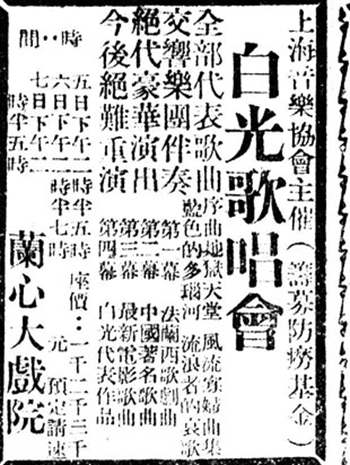 上海音樂協會主催（籌募防癆基金）
白光歌唱會
全部代表歌曲
交響樂團伴奏
絕代豪華演出
今後絕難重演
序曲 地獄天堂 風流寡婦曲集
藍色的多瑙河 流浪者的哀歌
第一幕 法蘭西歌劇曲
第二幕 中國著名歌曲
第三幕 最新電影歌曲
第四幕 白光代表作品
時間：
五日下午二時半五時
六日下午二時半七時
七日下午二時半五時
座價：一千二千三千元 預定請速
蘭心大戲院